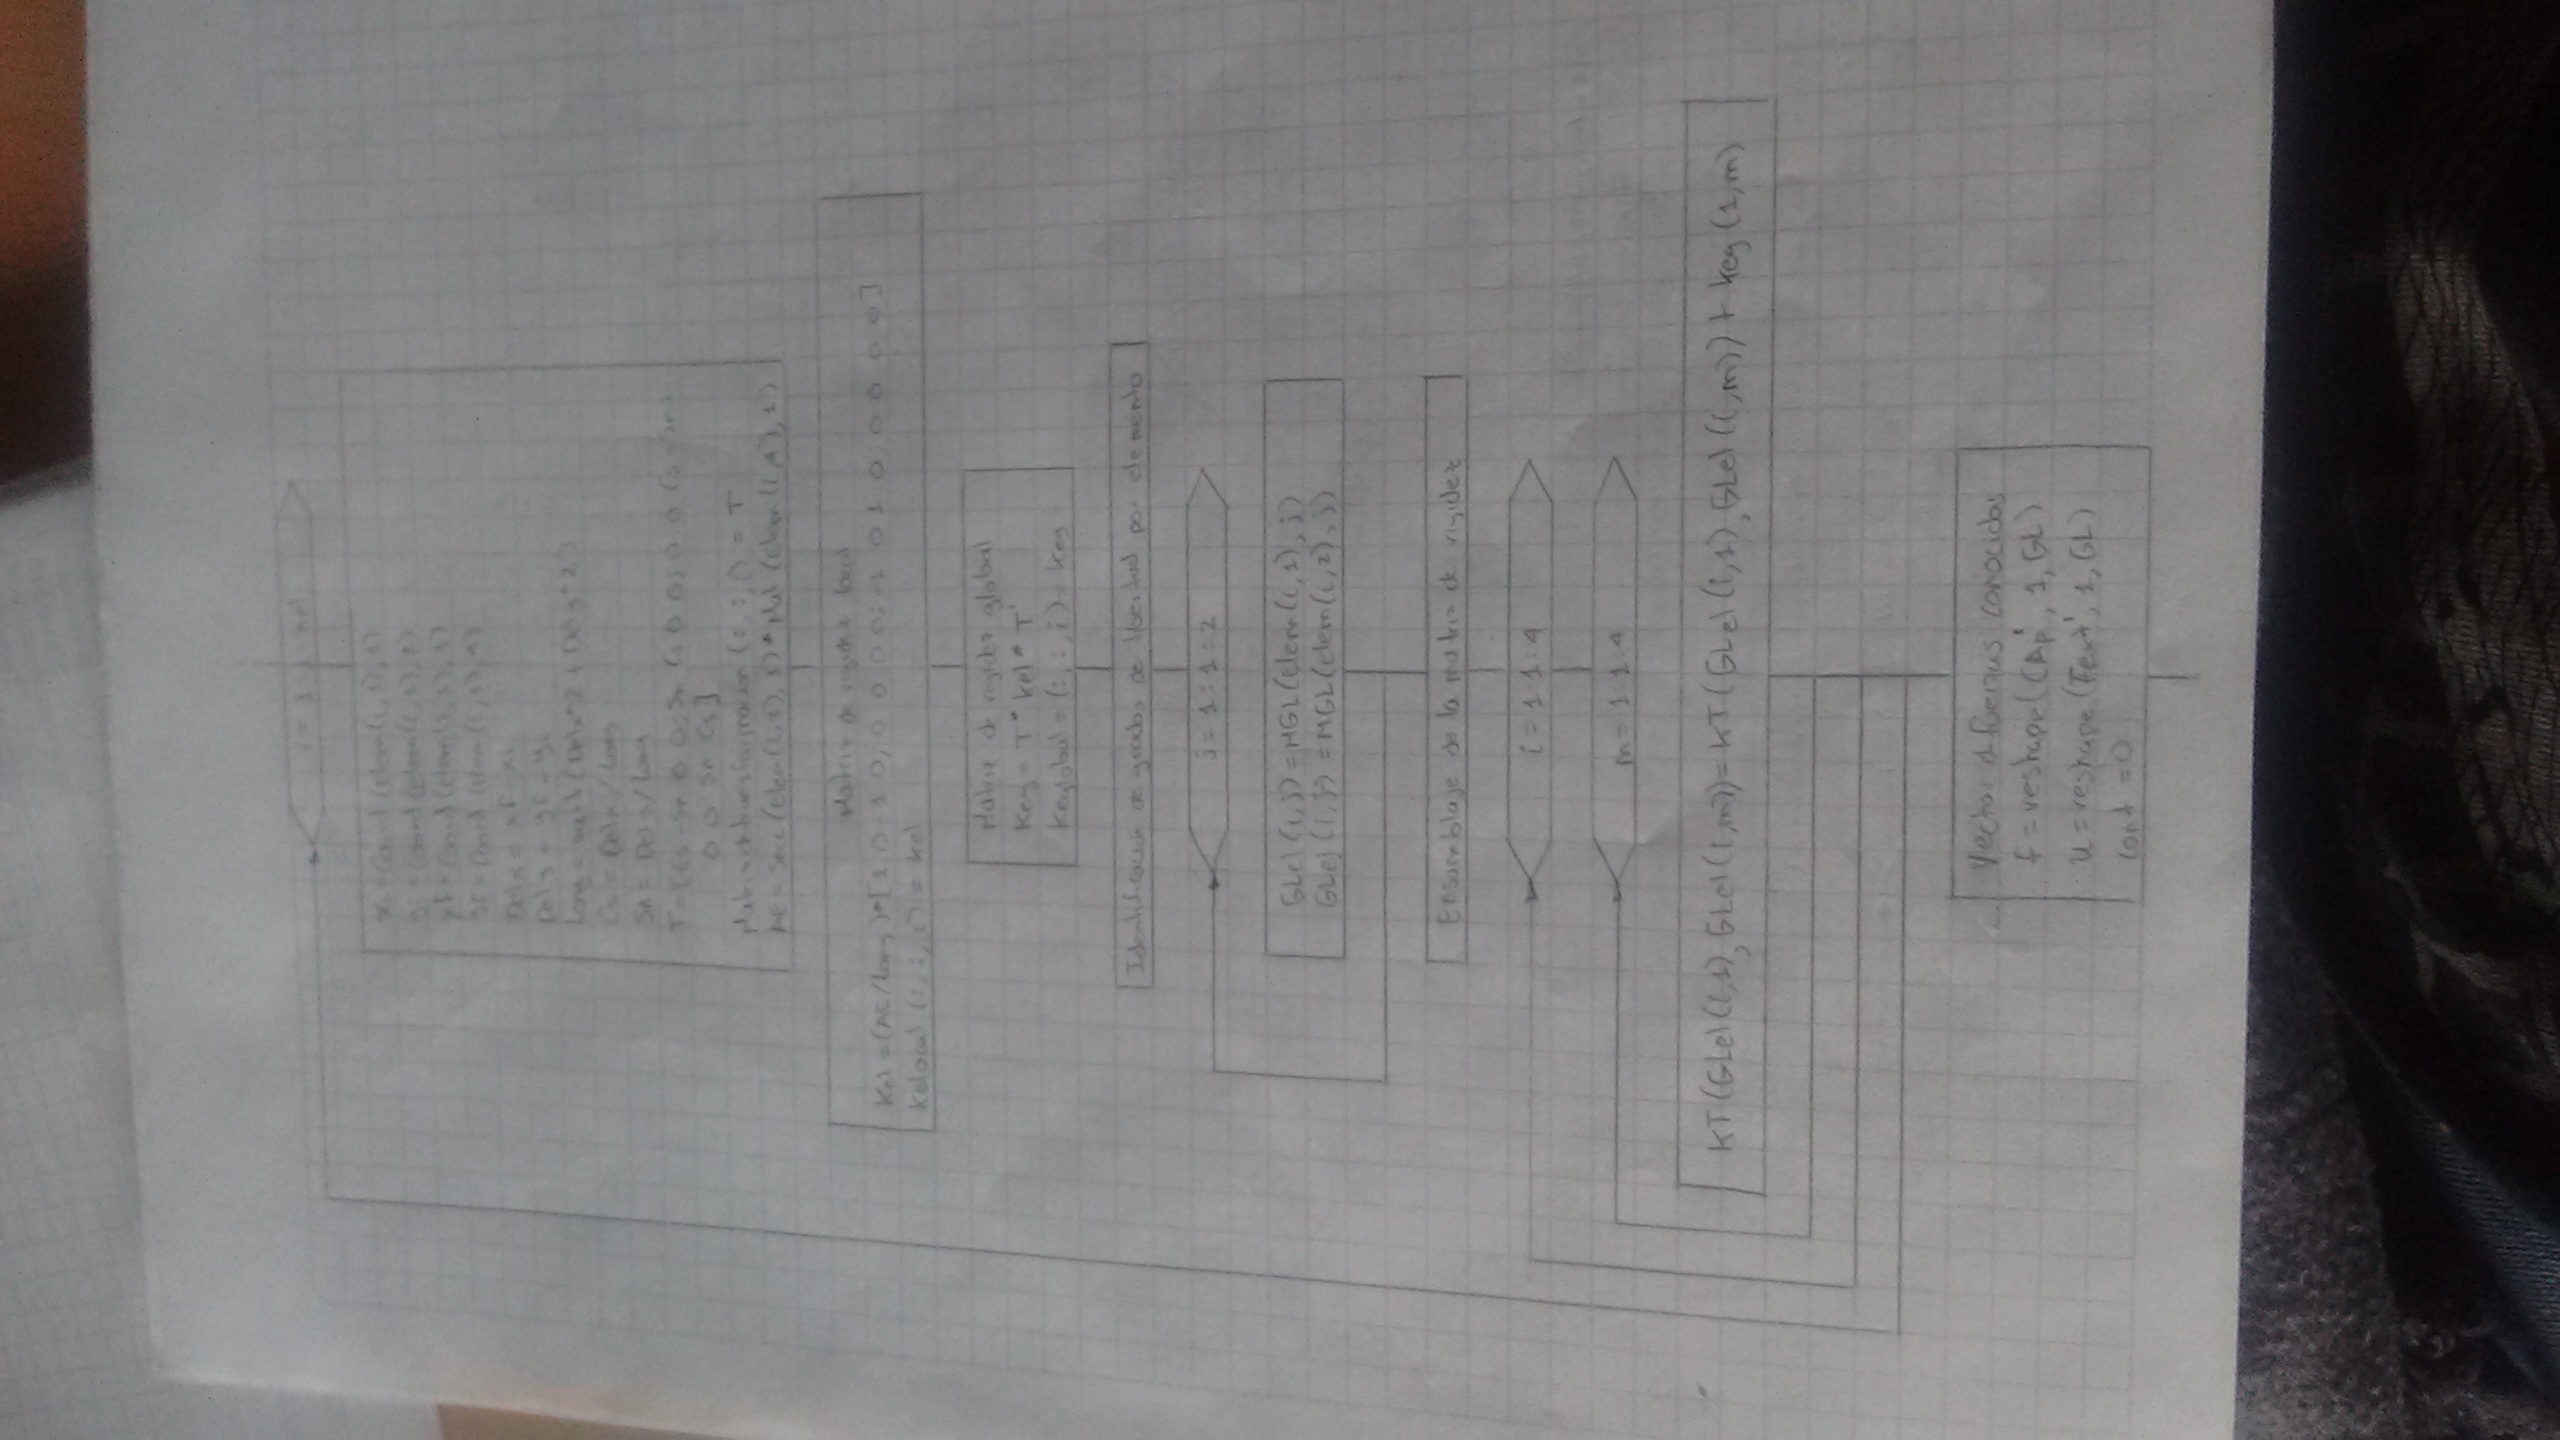 i = 1 : 1
xi = Coord (elem (i, 1), 1)
yi = Coord (elem (i, 1), 2)
Delx = xf - xi
Dely = yf - yi
Long = (Delx^2 + Dely^2)
Cs = Delx / Long
Sn = Dely / Long
T = [Cs -Sn 0 0; Sn Cs 0 0; 0 0 Cs
0 0 Sn Cs]
(:, :, i) = T
AE = Secc (elem (i, 3), 1) * Mat (elem (i, 4), 1)
Matriz de rigidez local
Kel = (AE/Long) * [1 0 -1 0, 0 0 0 0; -1 0 1 0, 0 0 0 0]
Kelocal (:, :, i) = Kel
Matriz de rigidez global
Keg = T * Kel * T'
Keglobal = (:, :, i) = Keg
de grados de libertad por elemento
j = 1:1:2
GLel (i,j) = MGL (elem (i, 1), j)
GLel (i,j) = MGL (elem (i, 2), j)
Ensamblaje de la matriz de rigidez
l = 1:1:4
m = 1:1:4
KT (GLel (i,1), GLel (i,m)) = KT (GLel (i,1), GLel (i,m)) + Keg (1,m)
Vector fuerzas conocidas
f = reshape (Ap', 1, GL)
u = reshape (Fext', 1, GL)
Cont = 0